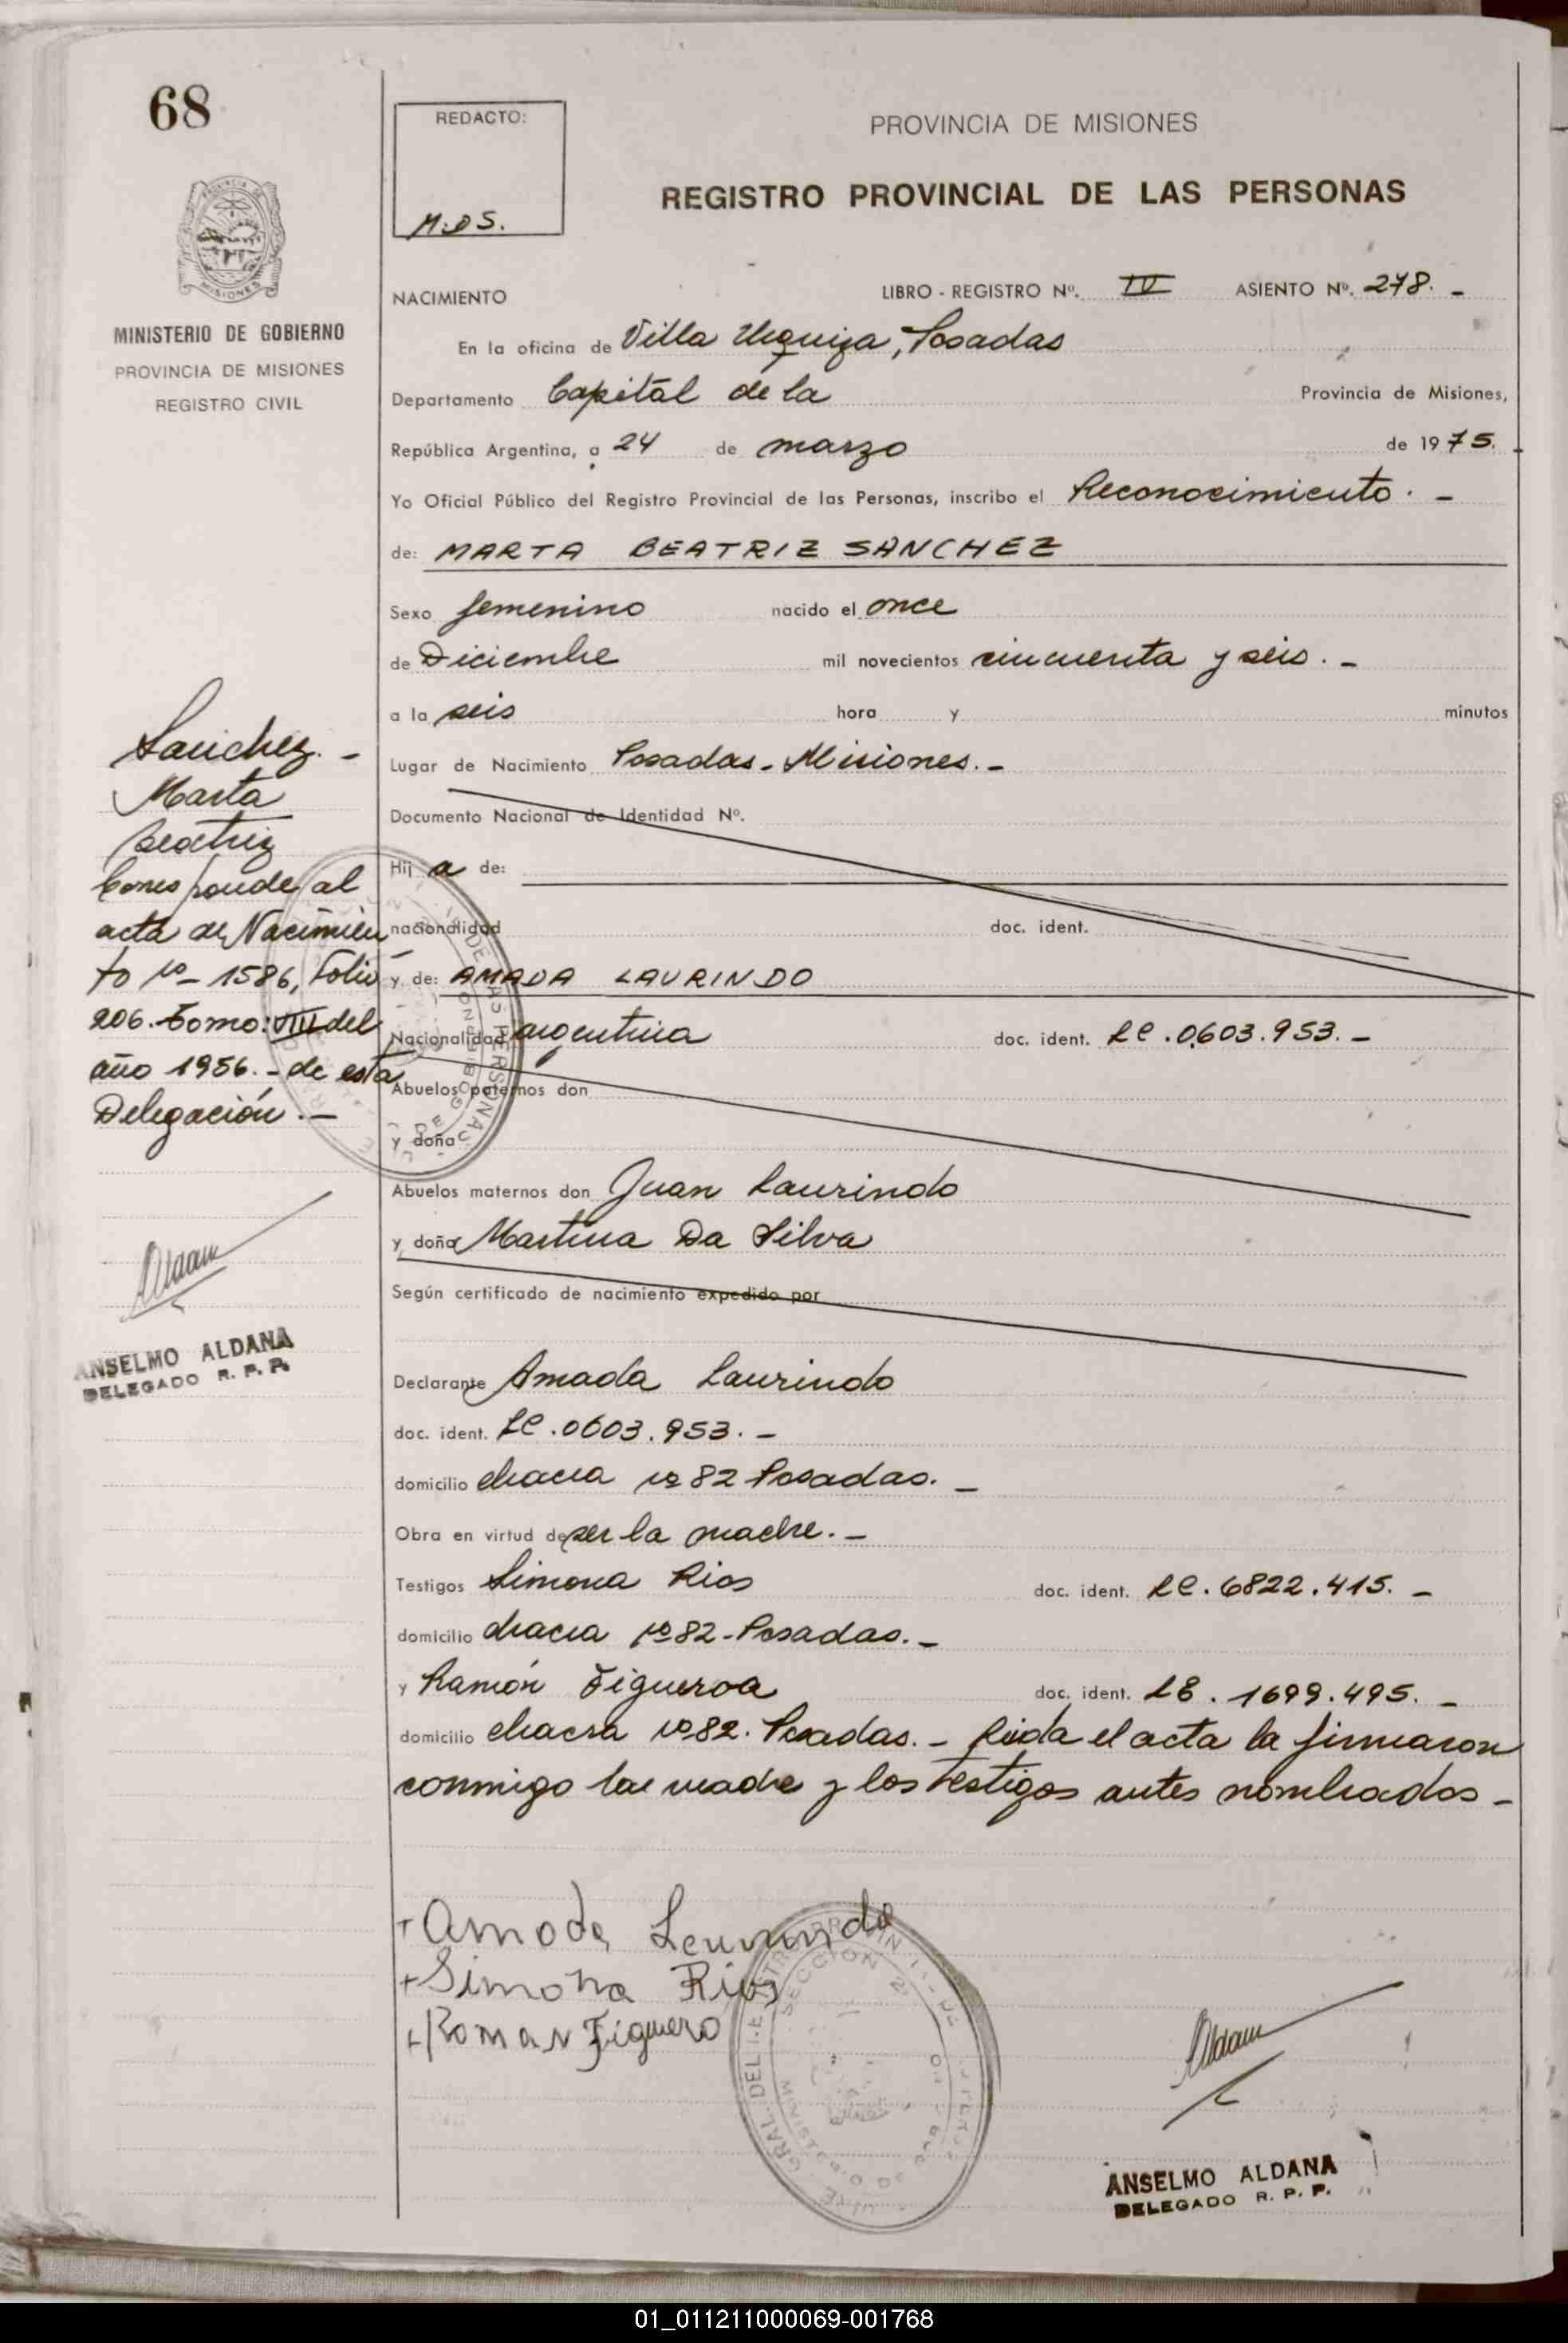 68
MINISTERIO DE GOBIERNO
PROVINCIA DE MISIONES
REGISTRO CIVIL
Sanchez. -
Marta
Beatriz
Corresponde al
acta de Nacimien
to Nº - 1586, Folio
206. Tomo: VIII del
año 1956. - de esta
Delegación. -
ANSELMO ALDANA
DELEGADO R. P. P.
REDACTO:
M.DS.
PROVINCIA DE MISIONES
REGISTRO PROVINCIAL DE LAS PERSONAS
NACIMIENTO LIBRO - REGISTRO Nº. IV ASIENTO Nº. 278. -
En la oficina de Villa Urquiza, Posadas
Departamento Capital de la Provincia de Misiones,
República Argentina, a 24 de marzo de 1975. -
Yo Oficial Público del Registro Provincial de las Personas, inscribo el Reconocimiento. -
de: MARTA BEATRIZ SANCHEZ
Sexo femenino nacido el once
de Diciembre mil novecientos cincuenta y seis. -
a la seis hora y minutos
Lugar de Nacimiento Posadas - Misiones. -
Documento Nacional de Identidad Nº.
Hij a de:
nacionalidad doc. ident.
y de: AMADA LAURINDO
Nacionalidad argentina doc. ident. LC. 0.603.953. -
Abuelos paternos don
y doña
Abuelos maternos don Juan Laurindo
y doña Martina Da Silva
Según certificado de nacimiento expedido por
Declarante Amada Laurindo
doc. ident. LC. 0603.953. -
domicilio chacra Nº 82 Posadas. -
Obra en virtud de ser la madre. -
Testigos Simona Rios doc. ident. LC. 6822.415. -
domicilio chacra Nº 82 - Posadas. -
y Ramón Figueroa doc. ident. LE. 1699.495. -
domicilio chacra Nº 82. Posadas. - Leida el acta la firmaron
conmigo la madre y los testigos antes nombrados -
+ Amoda
+ Simona Rios
+ Roman Figuero
ANSELMO ALDANA
DELEGADO R. P. P.
01_011211000069-001768